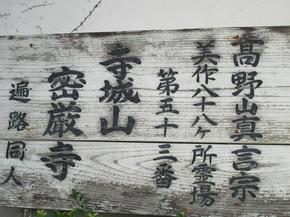 高野山真言宗
美作八十八ヶ所霊場
第五十三番
寺城山
密厳寺
遍路同人